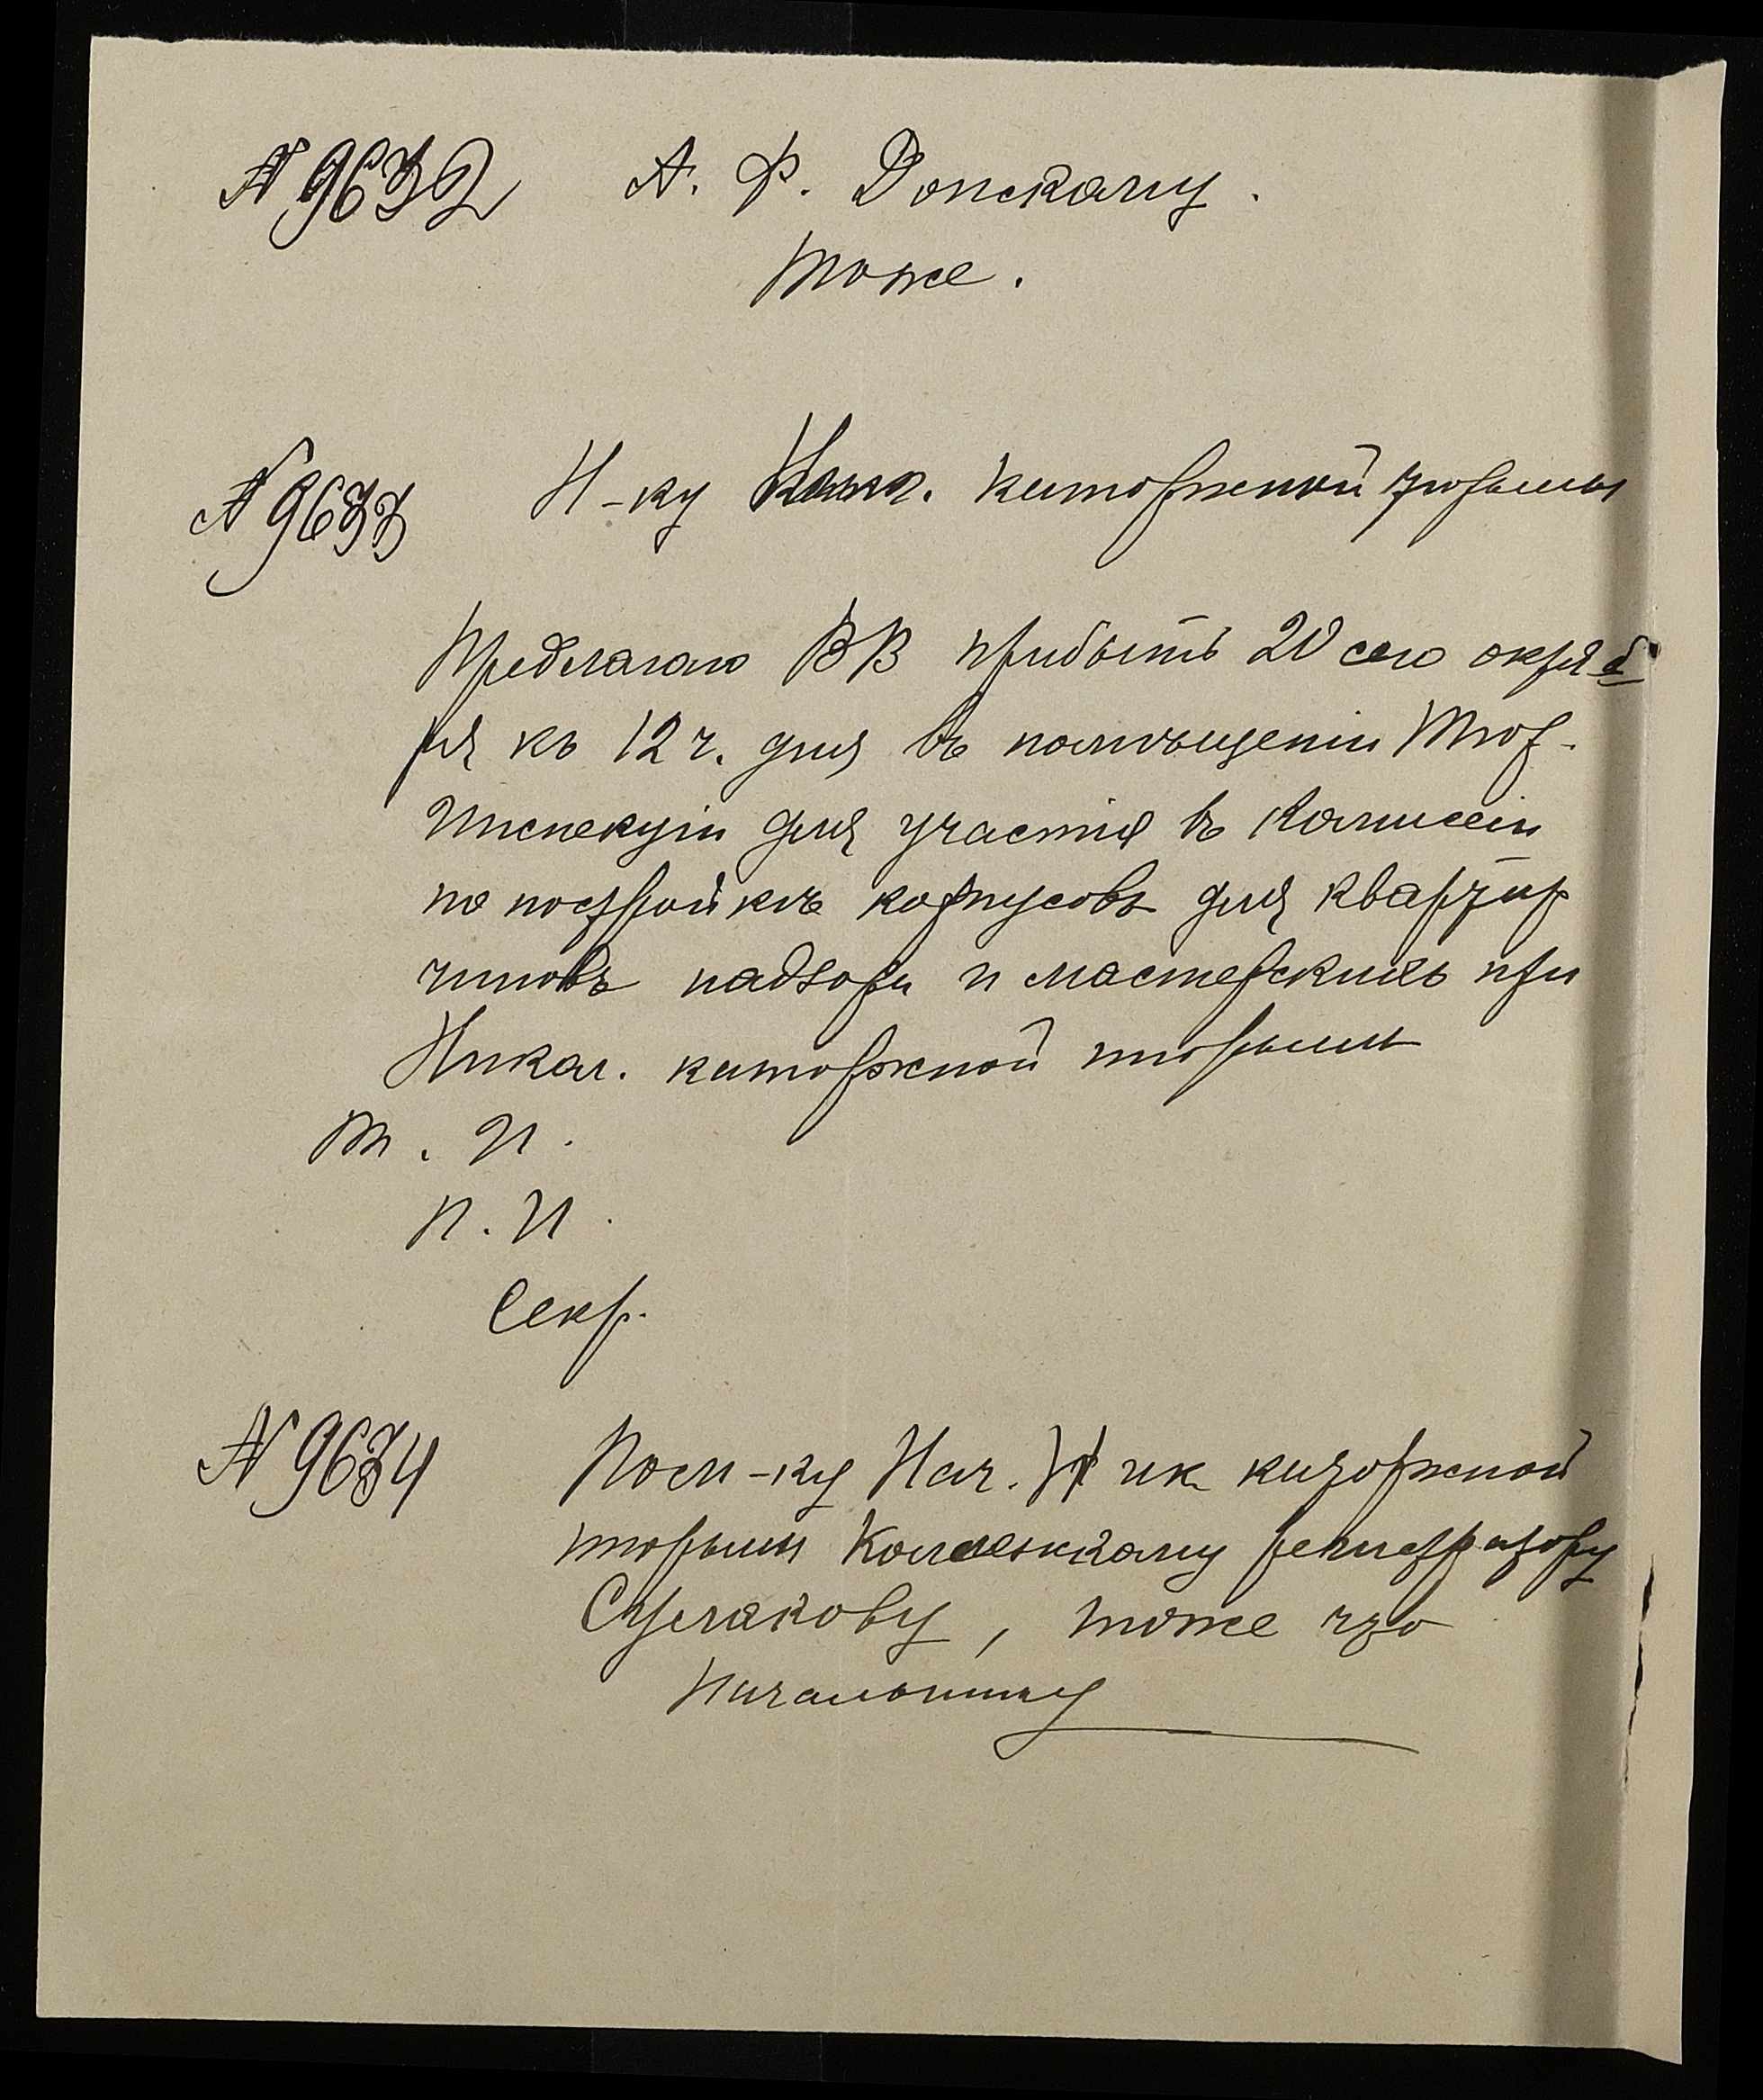 № 9632 А. Ф. Донскому.
тоже.
№ 9633 Н-ку Никол. каторжной тюрьмы
Предлагаю ВВ прибыть 20 сего октяб
ря къ 12 ч. дня въ помѣщеніи Тюр.
Инспекціи для участія въ комиссіи
по постройкѣ корпусовъ для квартир
чиновъ надзора и мастерскихъ при
Никол. каторжной тюрьмѣ
Т. И.
П. И.
Секр.
№ 9634 Пом-ку Нач. Ник. каторжной
тюрьмы Коллежскому регистратору
Стрелкову, тоже что
Начальнику